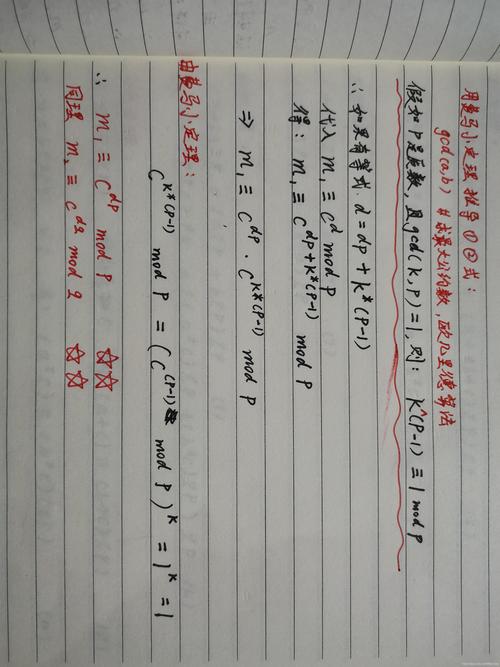 用费马小定理 推导①②式：
gcd(a,b) #求最大公约数，欧几里德算法
假如P是质数，且gcd(k,p)=1，则： k^(p-1) ≡ 1 mod p
∴ 如果有等式 d = dp + k*(p-1)
代入 m₁ ≡ c^d mod p
得： m₁ ≡ c^(dp+k*(p-1)) mod p
⇒ m₁ ≡ c^dp · c^(k*(p-1)) mod p
由费马小定理：
c^(k*(p-1)) mod p = (c^(p-1) mod p)^k = 1^k = 1
∴ m₁ ≡ c^dp mod p ☆☆
同理 m₂ ≡ c^dq mod q ☆☆